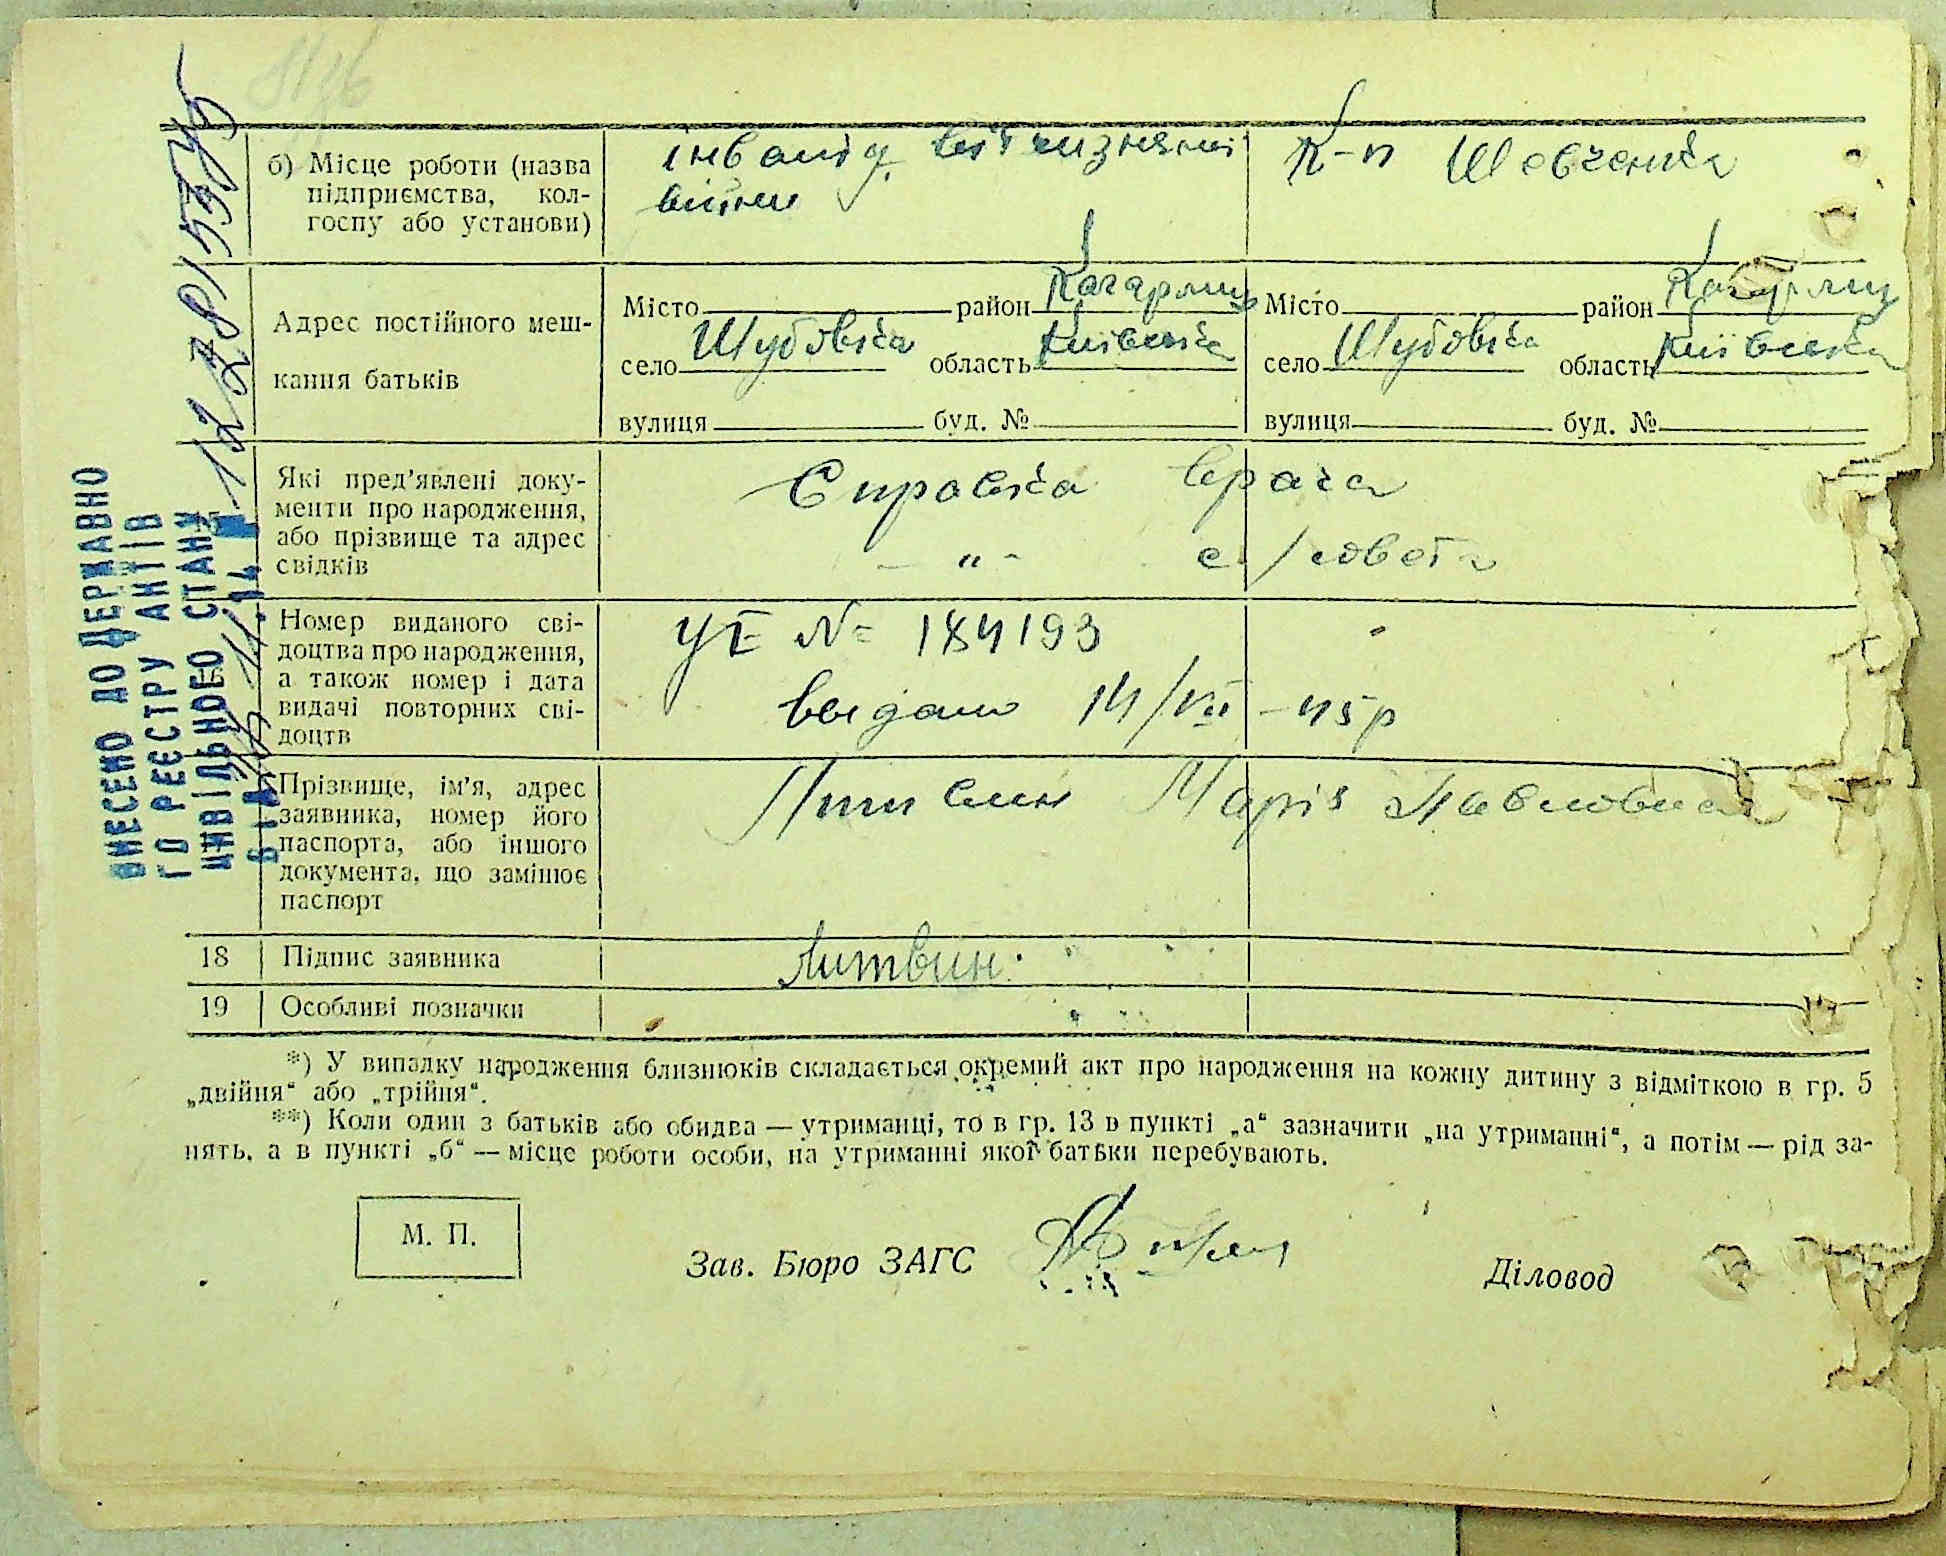 б) Місце роботи (назва
підприємства, кол-
госпу або установи)
інвалід вітчизняної
війни
К-п Шевченка
Адрес постійного меш-
кання батьків
Місто район Кагарлиц
село Шубовка область Київська
вулиця буд. №
Місто район Кагарлиц
село Шубовка область Київська
вулиця буд. №
Які пред'явлені доку-
менти про народження,
або прізвище та адрес
свідків
Справка врача
— „ — с/совета
Номер виданого сві-
доцтва про народження,
а також номер і дата
видачі повторних сві-
доцтв
№ 184193
видано 14/VII-45р
Прізвище, ім'я, адрес
заявника, номер його
паспорта, або іншого
документа, що замінює
паспорт
Литвин Марія Павловна
18 Підпис заявника
Литвин.
19 Особливі позначки
*) У випадку народження близнюків складається окремий акт про народження на кожну дитину з відміткою в гр. 5
„двійня“ або „трійня“.
**) Коли один з батьків або обидва — утриманці, то в гр. 13 в пункті „а“ зазначити „на утриманні“, а потім — рід за-
нять, а в пункті „б“ — місце роботи особи, на утриманні якої батьки перебувають.
М. П.
Зав. Бюро ЗАГС
Діловод
ВНЕСЕНО ДО ДЕРЖАВНО
ГО РЕЄСТРУ АКТІВ
ЦИВІЛЬНОГО СТАНУ